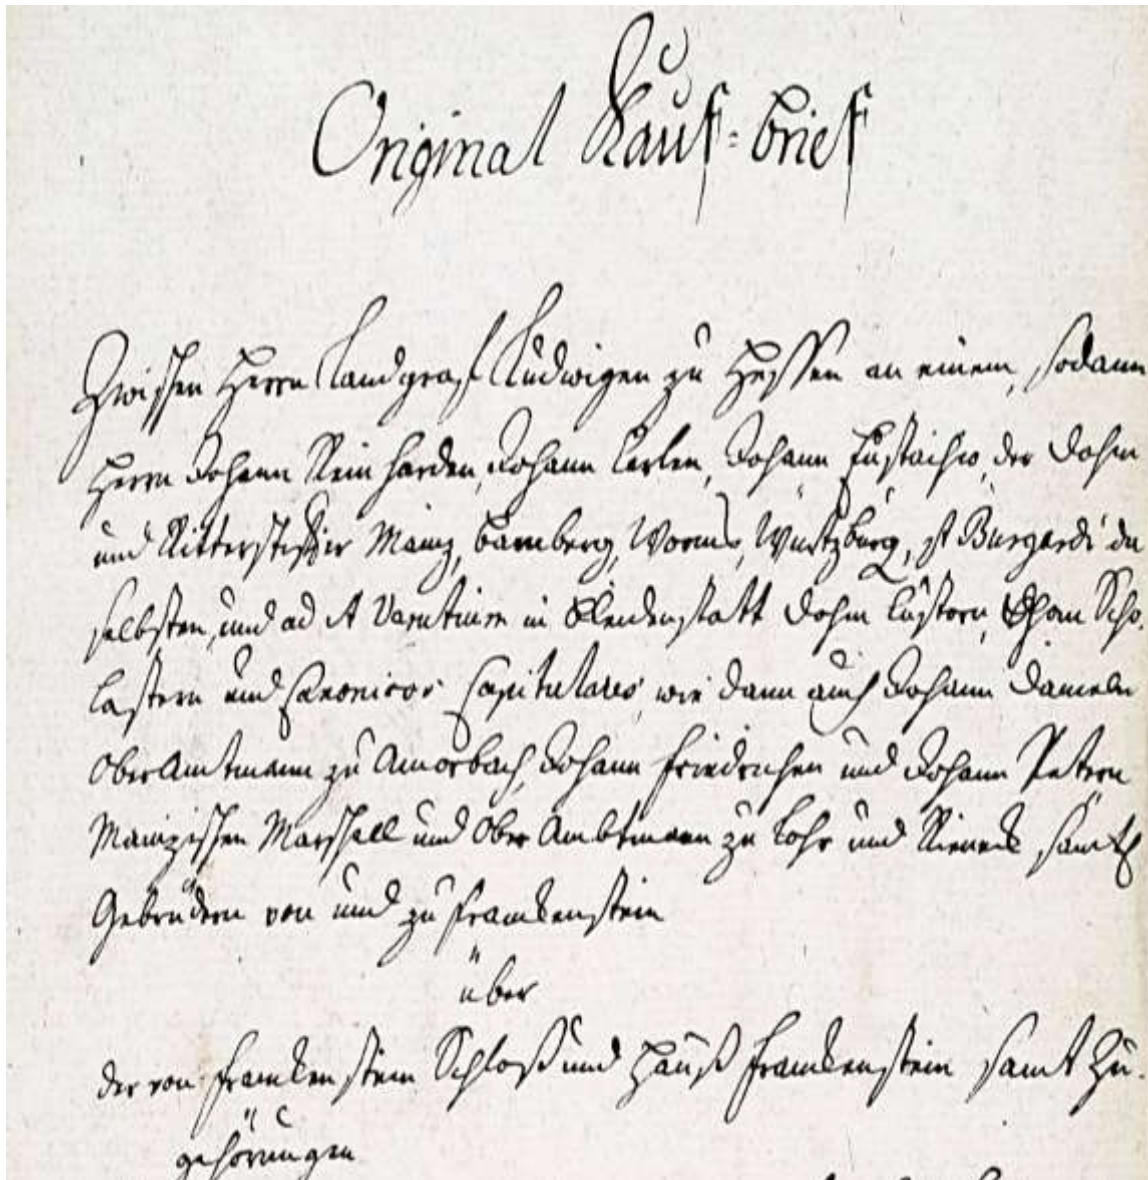 Original Kauf=brief
Zwischen Herrn Landgraf Ludwigen zu Hessen an einem, sodann
Herrn Johann Reinharden, Johann Carlen, Johann Eustachio, der Dohm
und Ritterstifter Mainz, Bamberg, Worms, Würtzburg, st Burgardi da
selbsten, und ad st in Bleidenstatt Dohm Cüstorn, Scho.
lastern und Canonicos Capitulares, wie dann auch Johann Danieln
OberAmtmann zu Amorbach, Johann Friedrichen und Johann Petern
Mainzischen Marschall und Ober Ambtmann zu Lohr und Rieneck samtl
Gebrüdern von und zu Franckenstein
über
der von Franckenstein Schloß und Hauß Franckenstein samt Zu.
gehörungen